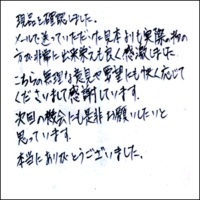 現品を確認しました。
メールで送っていただいた見本よりも実際の物の
方が非常に出来栄えも良く感激しました。
こちらの無理な意見や要望にも快く応じて
くださいまして感謝しています。
次回の機会にも是非お願いしたいと
思っています。
本当にありがとうございました。